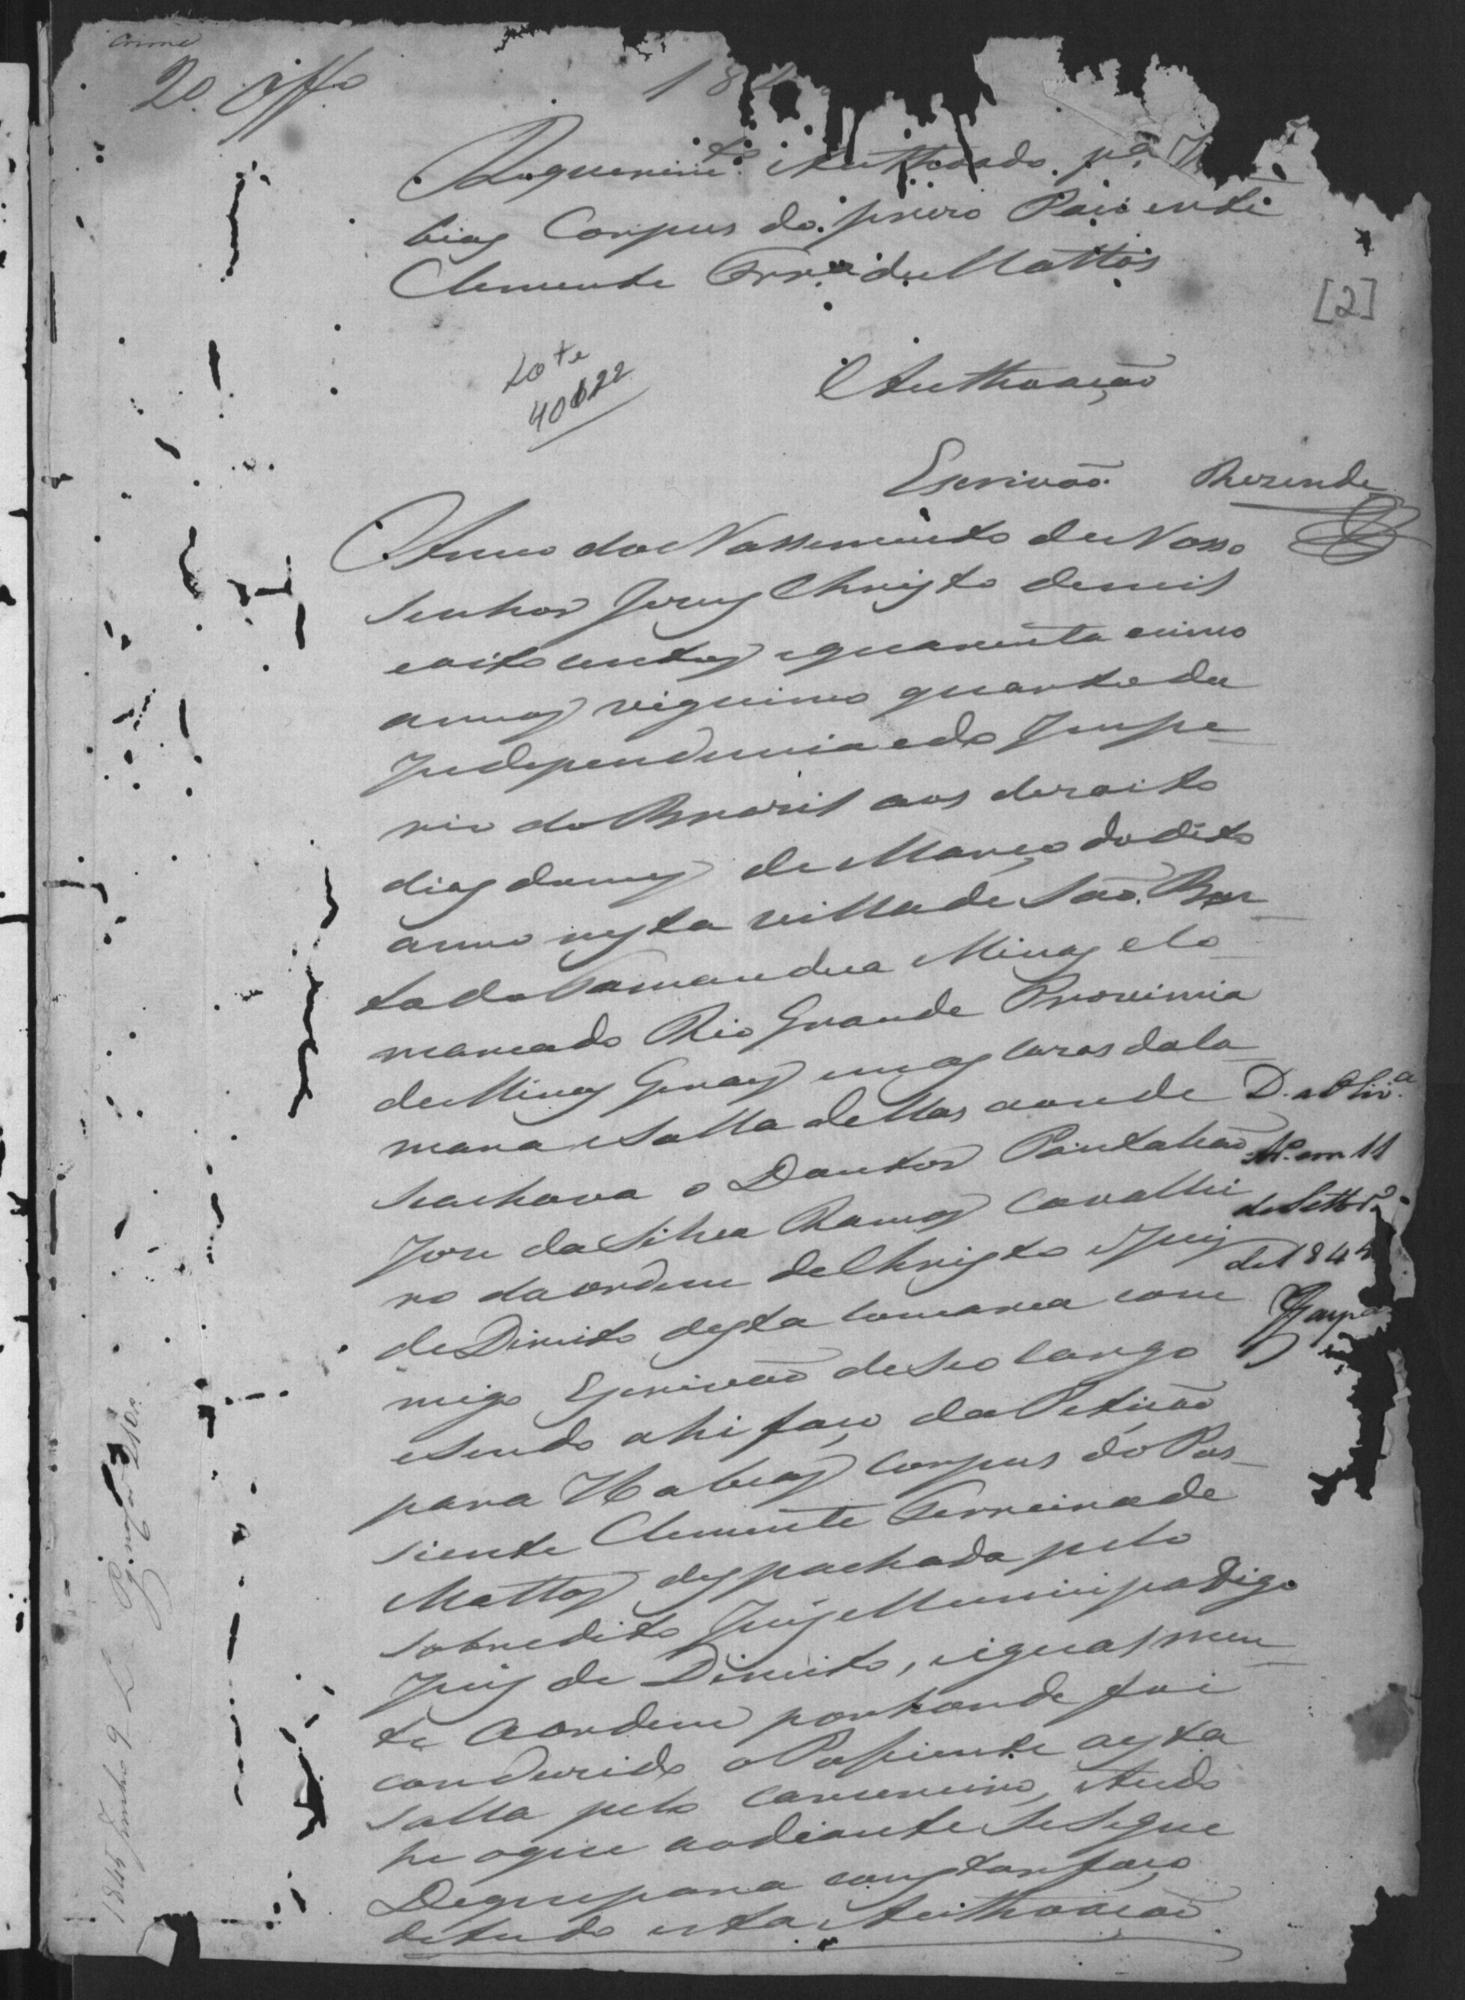 Crime
20. Offo
184
Requerimto. Authoado. pa. H
bias Corpus do. prezo Paciente
Clemente Ferra. de Mattos
[2]
Lote
40622
Authoação
Escrivão. Rezende
Anno do Nassemento de Nosso
Senhor Jesus Christo de mil
e oito centos e quarenta e sinco
annos vigesimo quarto da
Independencia e do Impe-
rio do Brasil aos dezoito
dias do mes de Março do dito
anno nesta villa de São Ben-
to do Tamandua Minas e Co-
marca do Rio Grande Provincia
de Minas Geraes em as Cazas da Ca-
mara e Salla dellas aonde
se achava o Doutor Pantalião
Joze da Silva Ramos Cavallei
ro da ordem de Christo e Juis
de Direito desta Comarca com
migo Escrivão de seo Cargo
e sendo ahi faço da Petição
para Habias Corpus do Pas-
siente Clemente Ferreira de
Mattos despachada pelo
sobredito Juis Municipa digo
Juis de Direito, e igualmen-
te a ordem por honde foi
conduzido o Pasiente a esta
Salla pelo Carcereiro, e tudo
he o que ao diante se segue
De que para constar faço
de tudo esta Authoação.
D. a Oliva.
em 11
de Settbro.
de 1844
1845 Junho 9